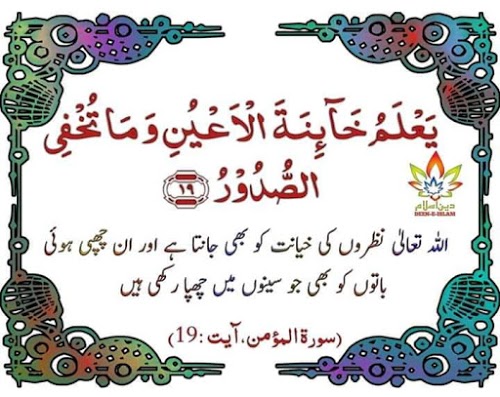 يَعْلَمُ خَآىِٕنَةَ الْاَعْيُنِ وَمَا تُخْفِى
الصُّدُوْرُ ﴿١٩﴾
دین اسلام
DEEN-E-ISLAM
اللہ تعالیٰ نظروں کی خیانت کو بھی جانتا ہے اور ان چھپی ہوئی
باتوں کو بھی جو سینوں میں چھپا رکھی ہیں
(سورۃ المؤمن، آیت :19)